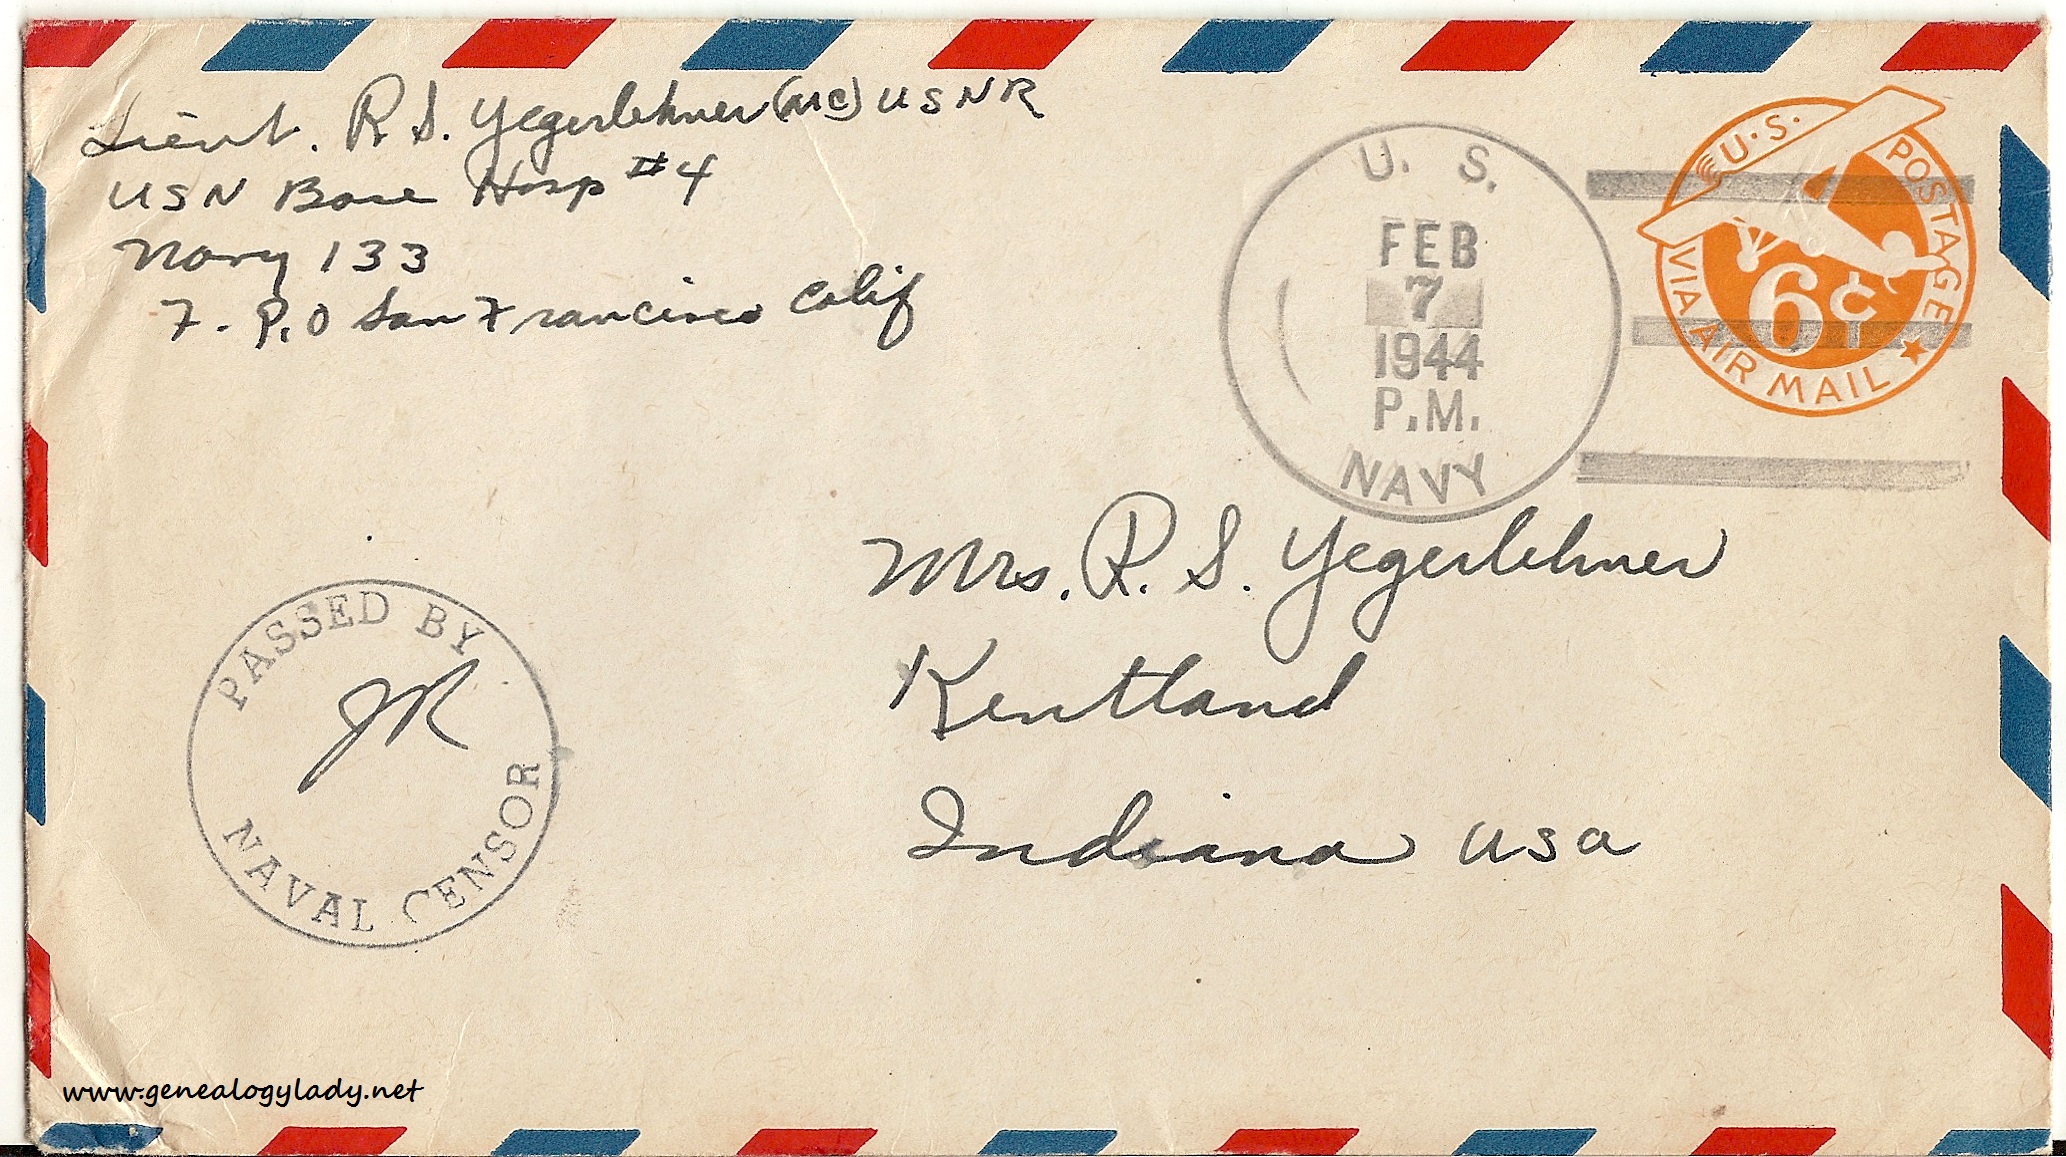 Lieut. R. S. Yegerlehner (MC) USNR
USN Base Hosp #4
Navy 133
F. P.O San Francisco Calif
U. S.
FEB
7
1944
P.M.
NAVY
U.S. POSTAGE
6¢
VIA AIR MAIL
Mrs. R. S. Yegerlehner
Kentland
Indiana USA
PASSED BY
JR
NAVAL CENSOR
www.genealogylady.net